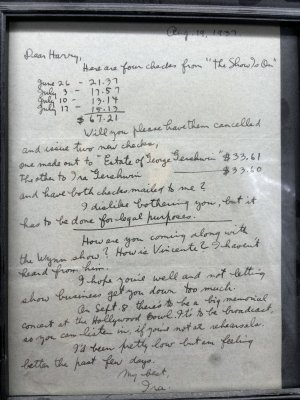 Aug. 19, 1937
Dear Harry,
Here are four checks from "the Show Is On"
June 26 - 21.37
July 3 - 17.57
July 10 - 13.14
July 17 - 15.13
$ 67.21
Will you please have them cancelled
and issue two new checks,
one made out to "Estate of George Gershwin" $33.61
The other to Ira Gershwin $33.60
and have both checks mailed to me?
I dislike bothering you, but it
has to be done for legal purposes.
How are you coming along with
the Wynn show? How is Vincente? I haven't
heard from him.
I hope you're well and not letting
show business get you down too much.
On Sept. 8 there's to be a big memorial
concert at the Hollywood Bowl. It's to be broadcast,
so you can listen in, if you're not at rehearsals.
I'd been pretty low but am feeling
better the past few days.
My best,
Ira.